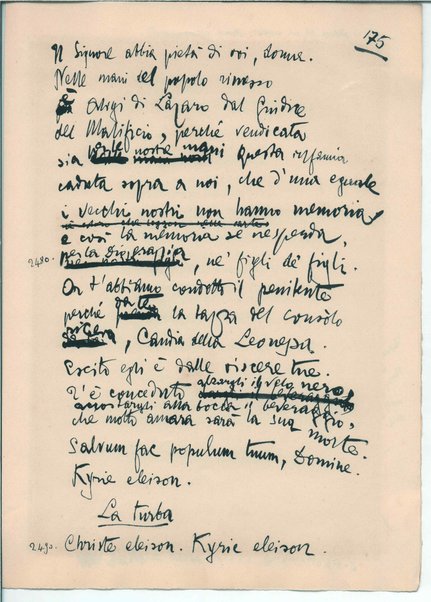 175
Il Signore abbia pietà di voi, donne.
Nelle mani del popolo rimesso
fu Aligi di Lazaro dal Giudice
del Malificio, perché vendicata
sia nostre mani questa infamia
caduta sopra a noi, che d'una eguale
i vecchi nostri non hanno memoria
e così la memoria se ne sperda,
2480. per la Dio grazia, ne' figli de' figli.
Or t'abbiamo condotto il penitente
perché da te la tazza del consòlo
, Candia della Leonessa.
Escito egli è dalle viscere tue.
T'è conceduto alzargli il velo nero,
accostargli alla bocca il beveraggio,
che molto amara sarà la sua morte.
Salvum fac populum tuum, Domine.
Kyrie eleison.
La turba
2490. Christe eleison. Kyrie eleison.